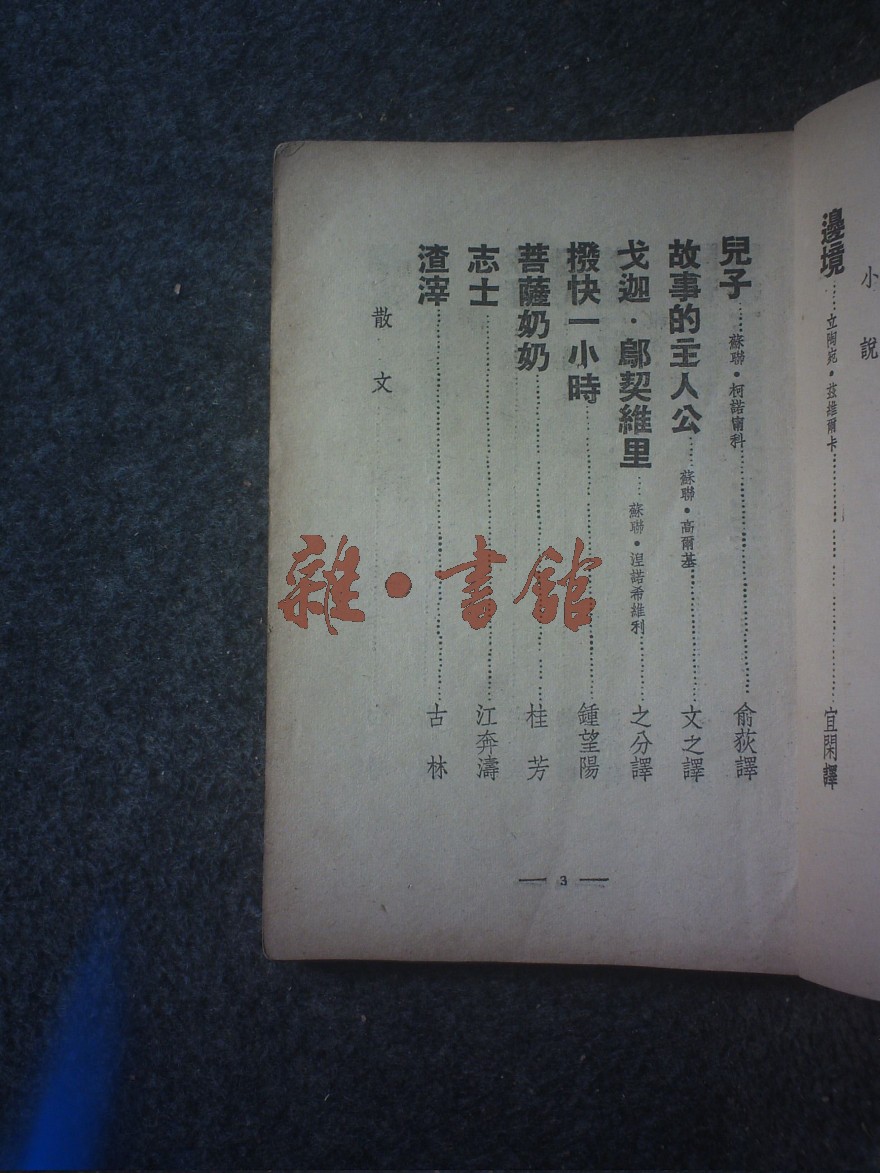 小說
邊境……立陶宛·茲維爾卡……宜閑譯
兒子……蘇聯·柯諾甯科……俞荻譯
故事的主人公……蘇聯·高爾基……文之譯
戈迦·鄔契維里……蘇聯·涅諾希維利……之分譯
撥快一小時……鍾望陽
菩薩奶奶……桂芳
志士……江奔濤
渣滓……古林
散文
— 3 —
雜·書館